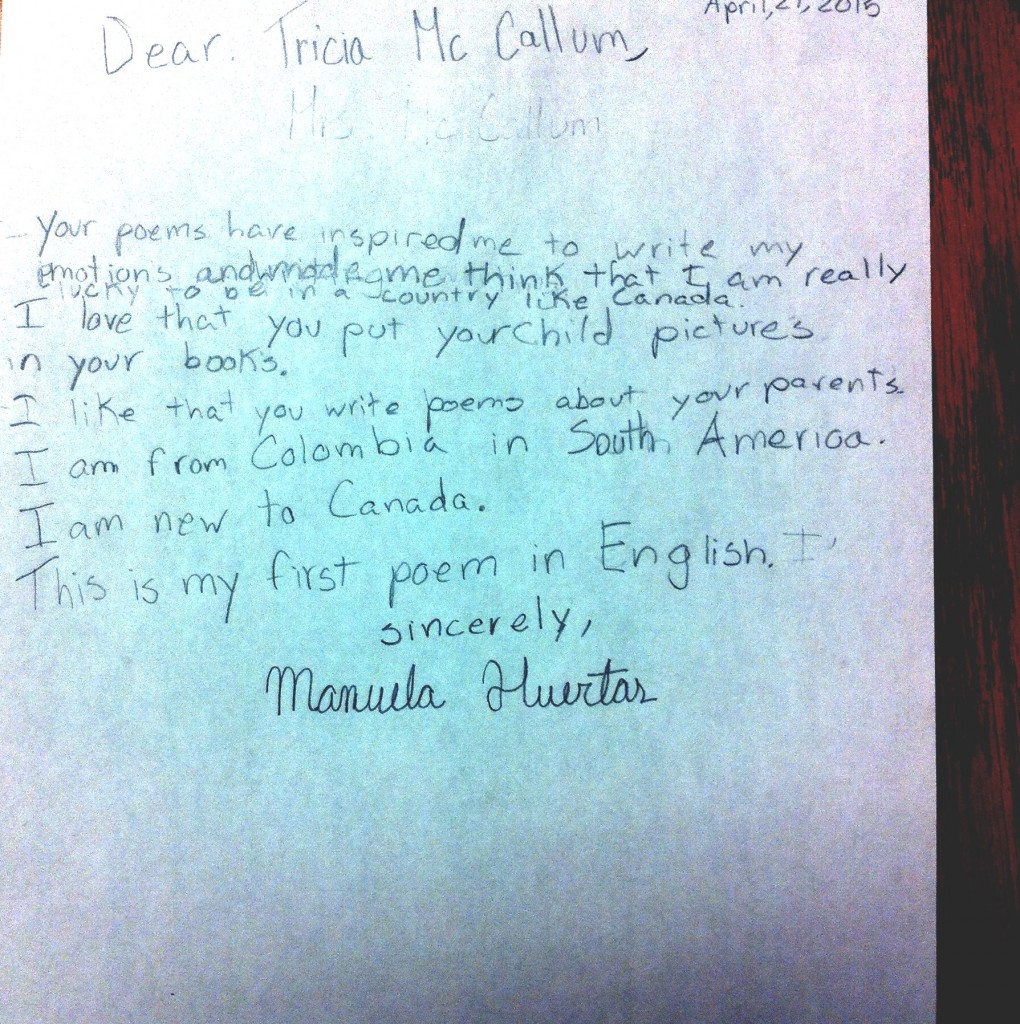 April, 21, 2015
Dear. Tricia Mc Callum,
Mrs. Mc Callum
Your poems have inspired me to write my
emotions and made me think that I am really
lucky to be in a country like Canada.
I love that you put your child pictures
in your books.
I like that you write poems about your parents.
I am from Colombia in South America.
I am new to Canada.
This is my first poem in English. I
sincerely,
Manuela Huertas